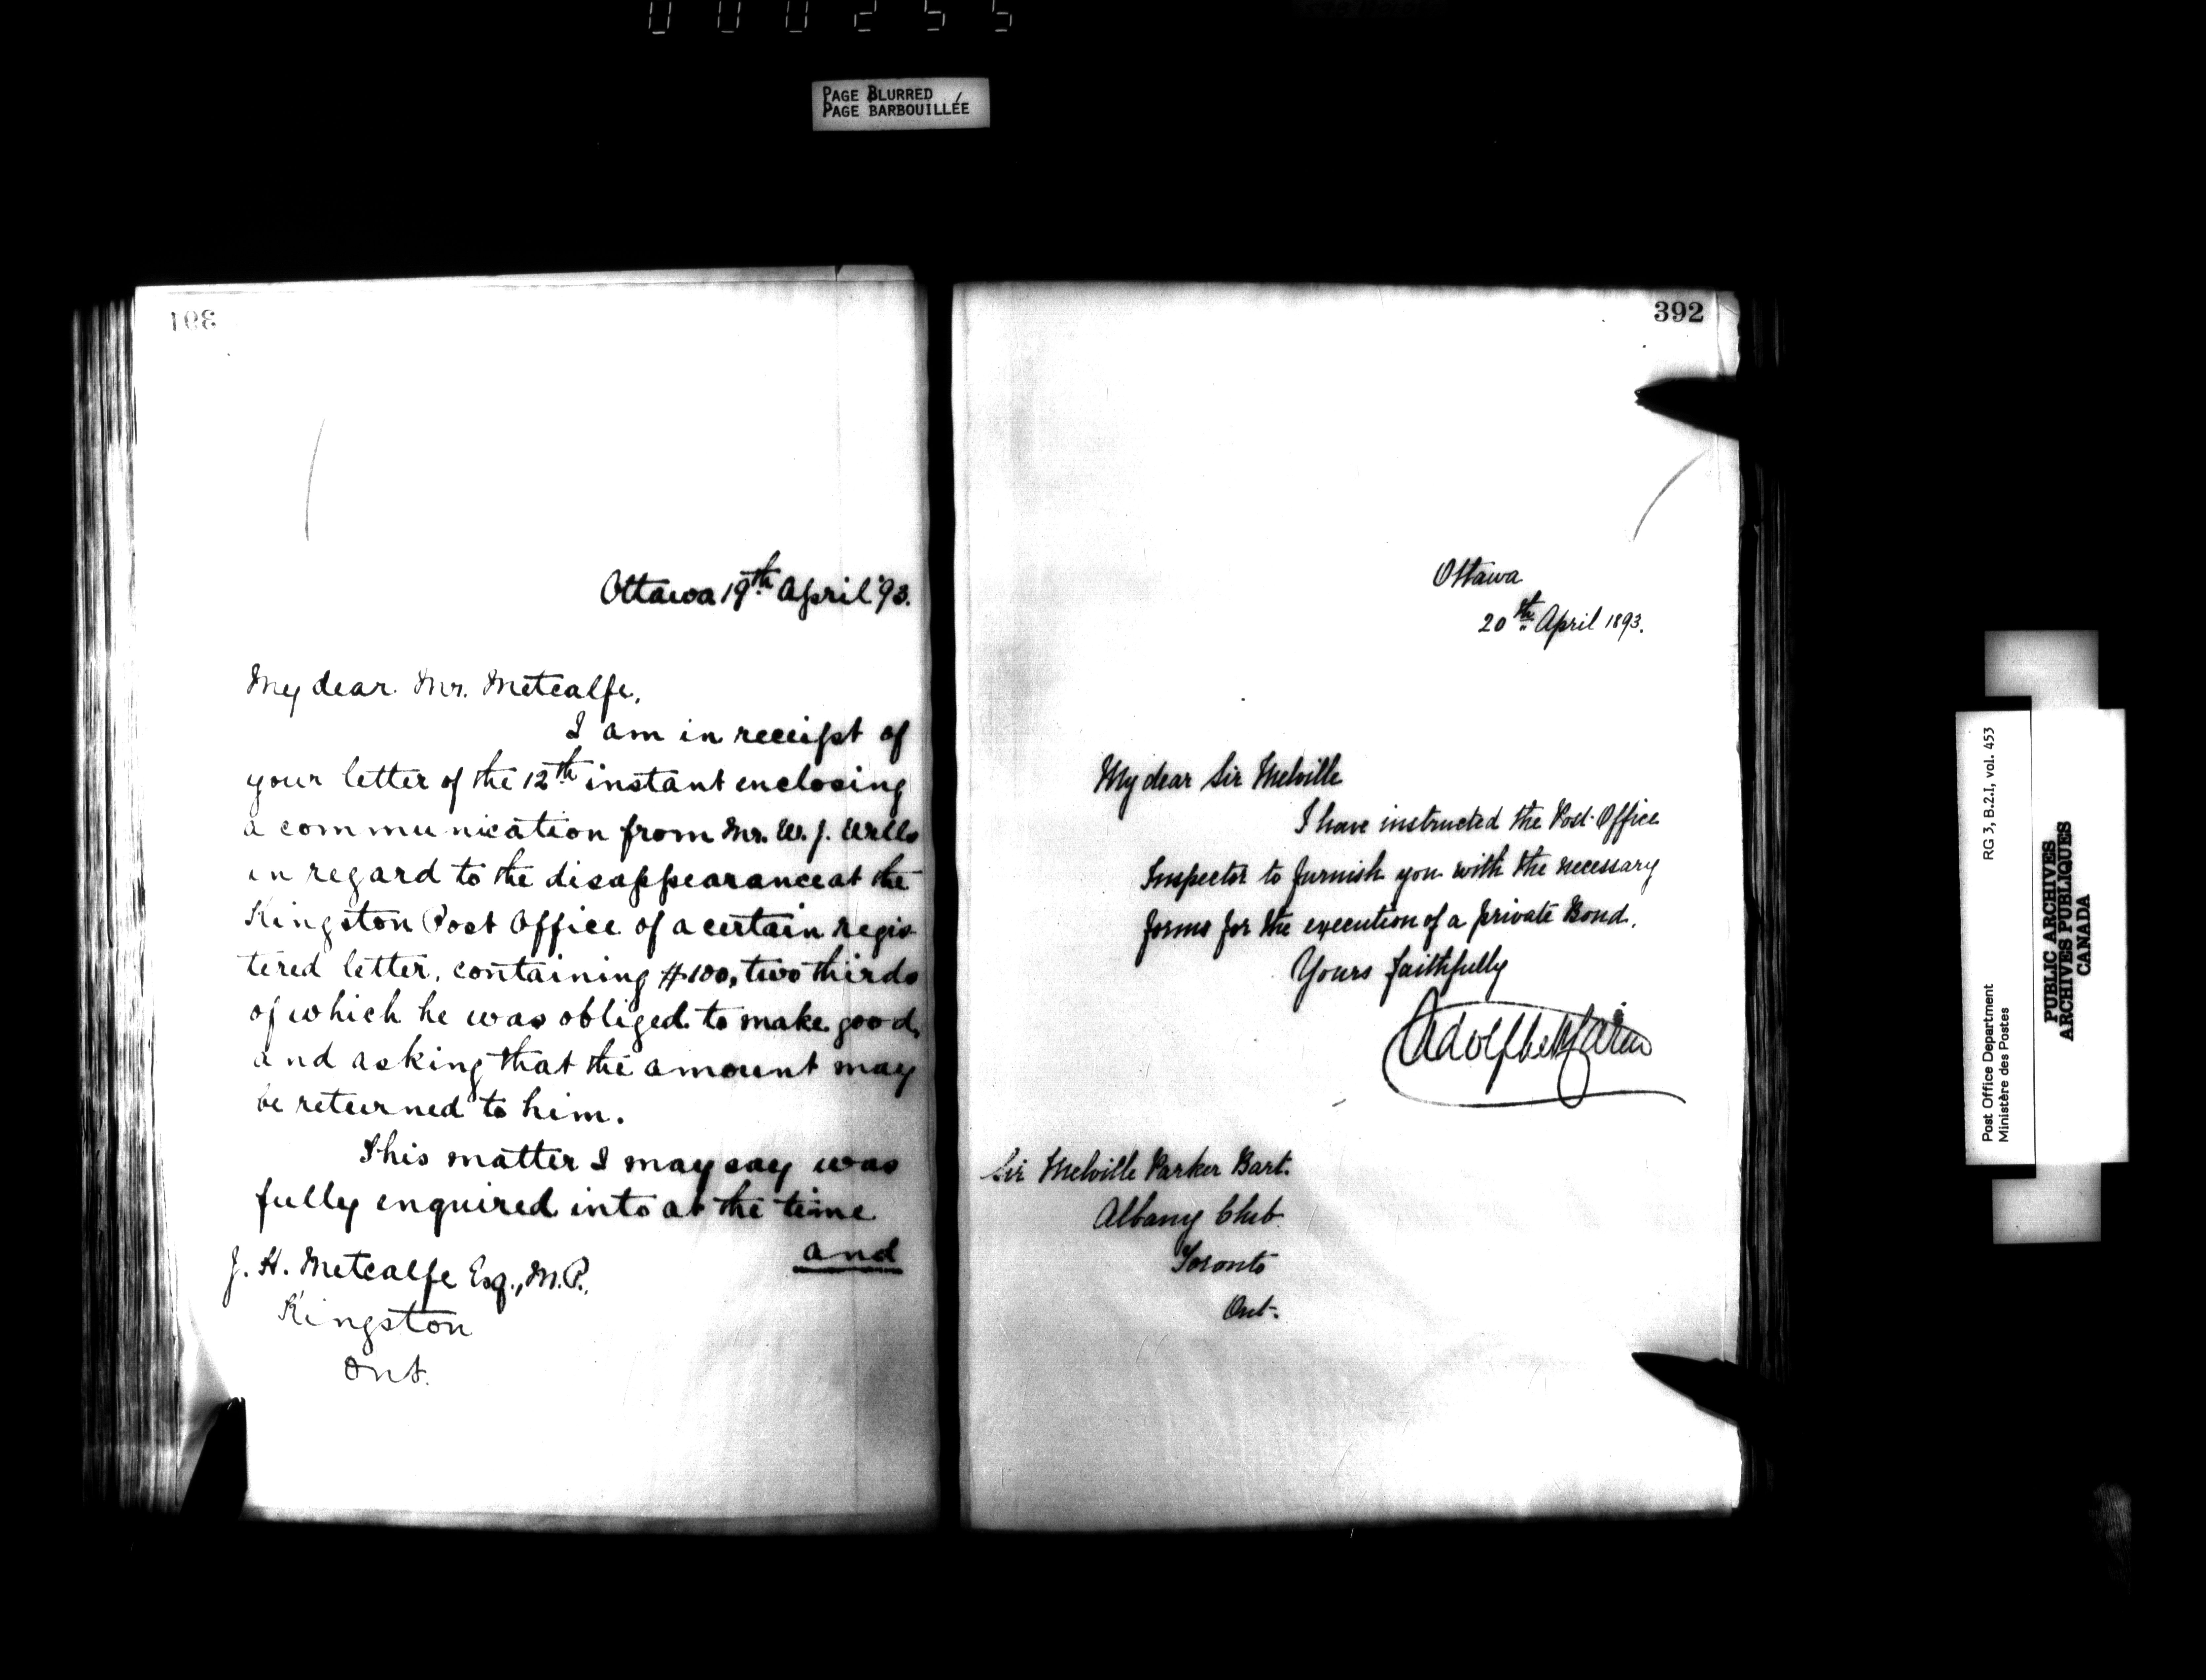 000255
PAGE BLURRED
PAGE BARBOUILLÉE
391
Ottawa 19th April '93.
My dear Mr. Metcalfe,
I am in receipt of
your letter of the 12th instant enclosing
a communication from Mr. W. J. Wills
in regard to the disappearance at the
Kingston Post Office of a certain regis-
tered letter, containing $100, two thirds
of which he was obliged to make good,
and asking that the amount may
be returned to him.
This matter I may say was
fully enquired into at the time
and
J. H. Metcalfe Esq., M.P.,
Kingston
Ont.
392
Ottawa
20th April 1893.
My dear Sir Melville
I have instructed the Post-Office
Inspector to furnish you with the necessary
forms for the execution of a private Bond.
Yours faithfully
Adolphe P Caron
Sir Melville Parker Bart.
Albany Club
Toronto
Ont.
RG 3, B.2.I, vol. 453
Post Office Department
Ministère des Postes
PUBLIC ARCHIVES
ARCHIVES PUBLIQUES
CANADA